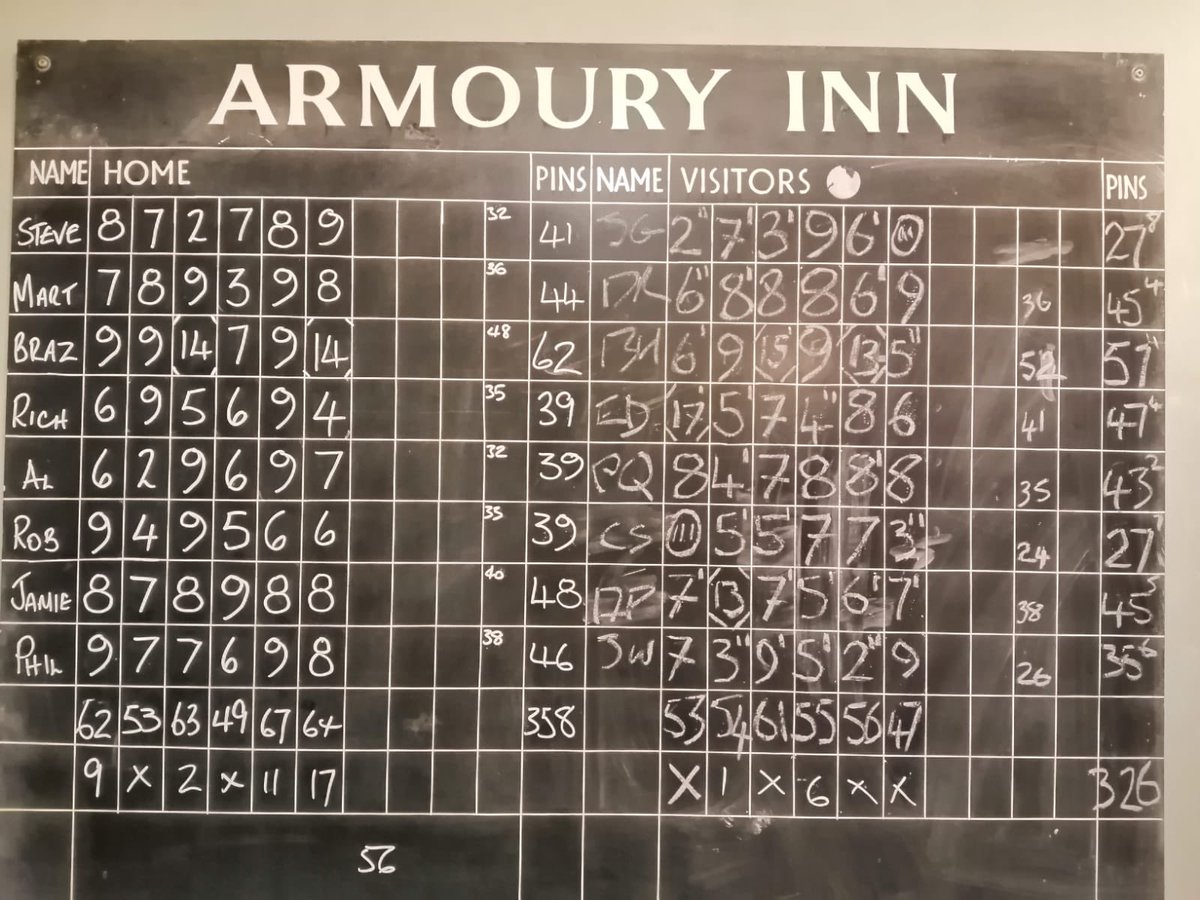 ARMOURY INN
NAME HOME PINS NAME VISITORS PINS
STEVE 8 7 2 7 8 9 32 41 SG 2" 7' 3' 9 6' 0 27 8
MART 7 8 9 3 9 8 36 44 6" 8' 8 8 6' 9 36 45 4
BRAZ 9 9 14 7 9 14 48 62 BH 6' 9 15 9 13 5" 57
RICH 6 9 5 6 9 4 35 39 ED 17 5' 7 4" 8 6 41 47 4
AL 6 2 9 6 9 7 32 39 PQ 8 4' 7 8 8' 8 35 43 2
ROB 9 4 9 5 6 6 35 39 CS 0 5' 5' 7 7 3" 24 27
JAMIE 8 7 8 9 8 8 40 48 7' 13 7' 5' 6' 7' 38 45 5
PHIL 9 7 7 6 9 8 38 46 JW 7 3" 9' 5' 2" 9 26 35 6
62 53 63 49 67 64 358 53 54 61 55 56 47
9 x 2 x 11 17 X 1 x 6 x x 326
56